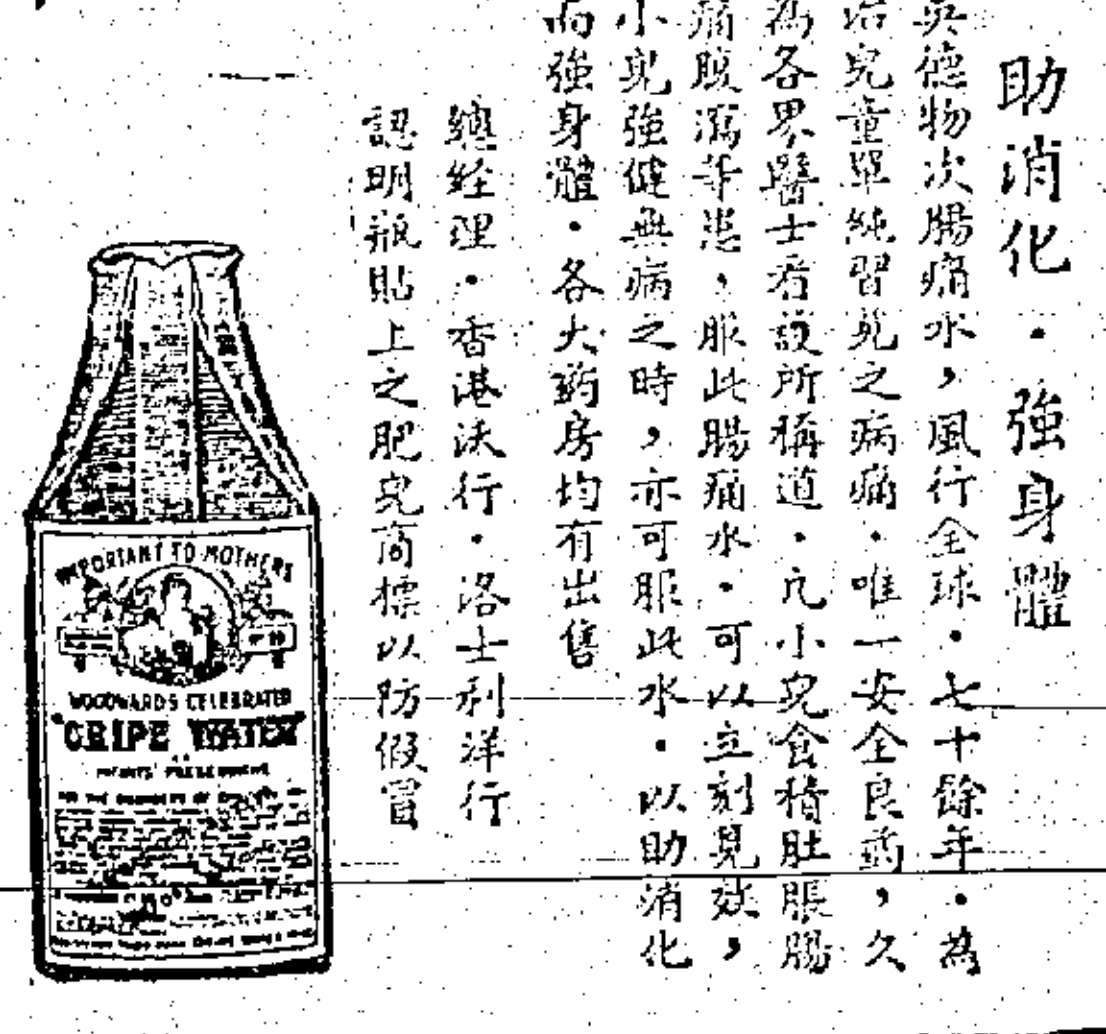 助消化·強身體
英德物次腸痛水,風行全球·七十餘年·為
治兒童單純習見之病痛·唯一安全良药,久
為各界醫士看護所稱道·凢小兒食積肚脹腸
痛腹瀉等患,服此腸痛水·可以立刻見效,
小兒強健無病之時,亦可服此水·以助消化
而強身體·各大药房均有出售
總經理·香港沃行·洛士利洋行
認明瓶貼上之肥兒商標以防假冒
IMPORTANT TO MOTHERS
WOODWARDS CELEBRATED
"GRIPE WATER"